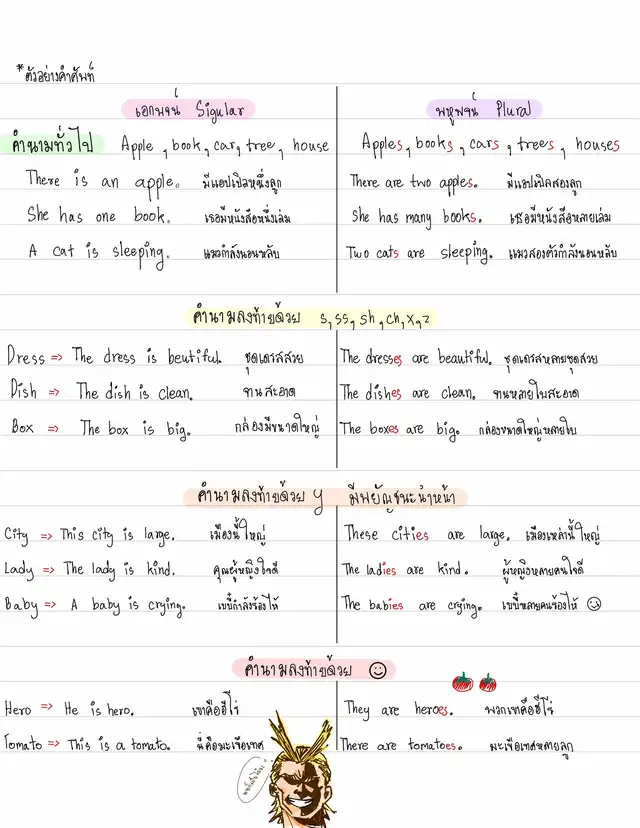 *ตัวอย่างคำศัพท์
เอกพจน์ Sigular
พหูพจน์ Plural
คำนามทั่วไป Apple, book, car, tree, house
Apples, books, cars, trees, houses
There is an apple. มีแอปเปิลหนึ่งลูก
There are two apples. มีแอปเปิลสองลูก
She has one book. เธอมีหนังสือหนึ่งเล่ม
She has many books. เธอมีหนังสือหลายเล่ม
A cat is sleeping. แมวกำลังนอนหลับ
Two cats are sleeping. แมวสองตัวกำลังนอนหลับ
คำนามลงท้ายด้วย s, ss, sh, ch, x, z
Dress => The dress is beutiful. ชุดเดรสสวย
The dresses are beautiful. ชุดเดรสหลายชุดสวย
Dish => The dish is clean. จานสะอาด
The dishes are clean. จานหลายใบสะอาด
Box => The box is big. กล่องมีขนาดใหญ่
The boxes are big. กล่องขนาดใหญ่หลายใบ
คำนามลงท้ายด้วย y มีพยัญชนะนำหน้า
City => This city is large. เมืองนี้ใหญ่
These cities are large. เมืองเหล่านี้ใหญ่
Lady => The lady is kind. คุณผู้หญิงใจดี
The ladies are kind. ผู้หญิงหลายคนใจดี
Baby => A baby is crying. เบบี้กำลังร้องไห้
The babies are crying. เบบี้หลายคนร้องไห้
คำนามลงท้ายด้วย
Hero => He is hero. เขาคือฮีโร่
They are heroes. พวกเขาคือฮีโร่
Tomato => This is a tomato. นี่คือมะเขือเทศ
There are tomatoes. มะเขือเทศหลายลูก